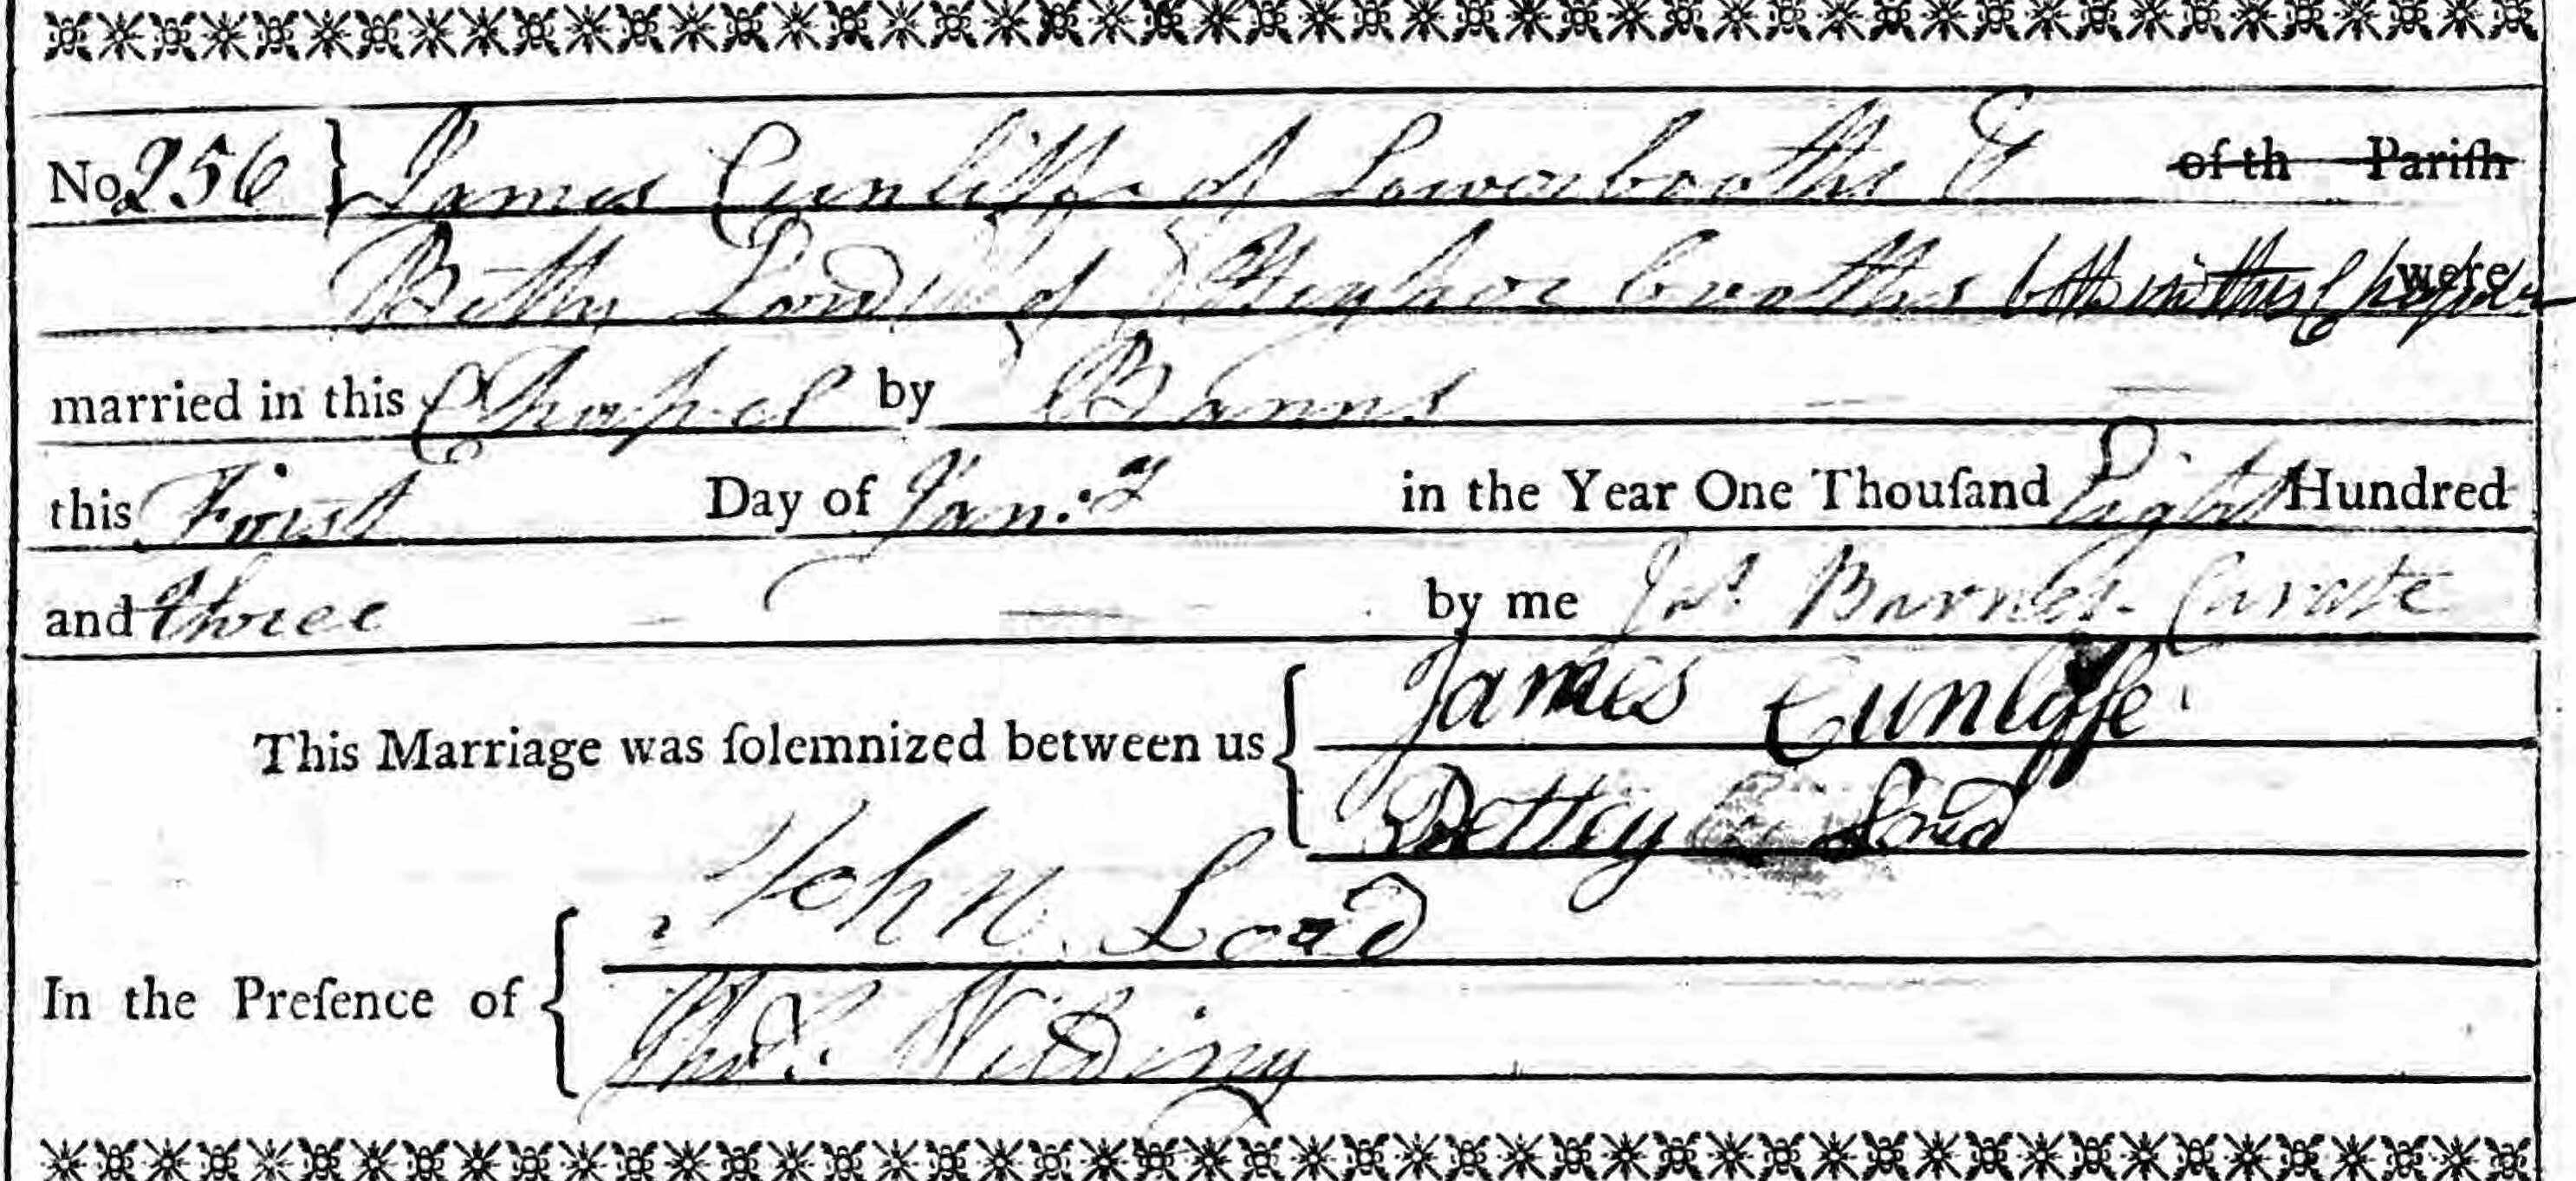 No 256 } James Cunliffe of Lowerbooths & of th Pariſh
Betty Lord of Higher booths both in this Chapelr were
married in this Chapel by Banns
this First Day of Jan:y in the Year One Thouſand Eight Hundred
and three by me Jos. Barnes. Curate
This Marriage was ſolemnized between us { James Cunliffe
Bettey Lord
In the Preſence of { John Lord
Thos. Wilding